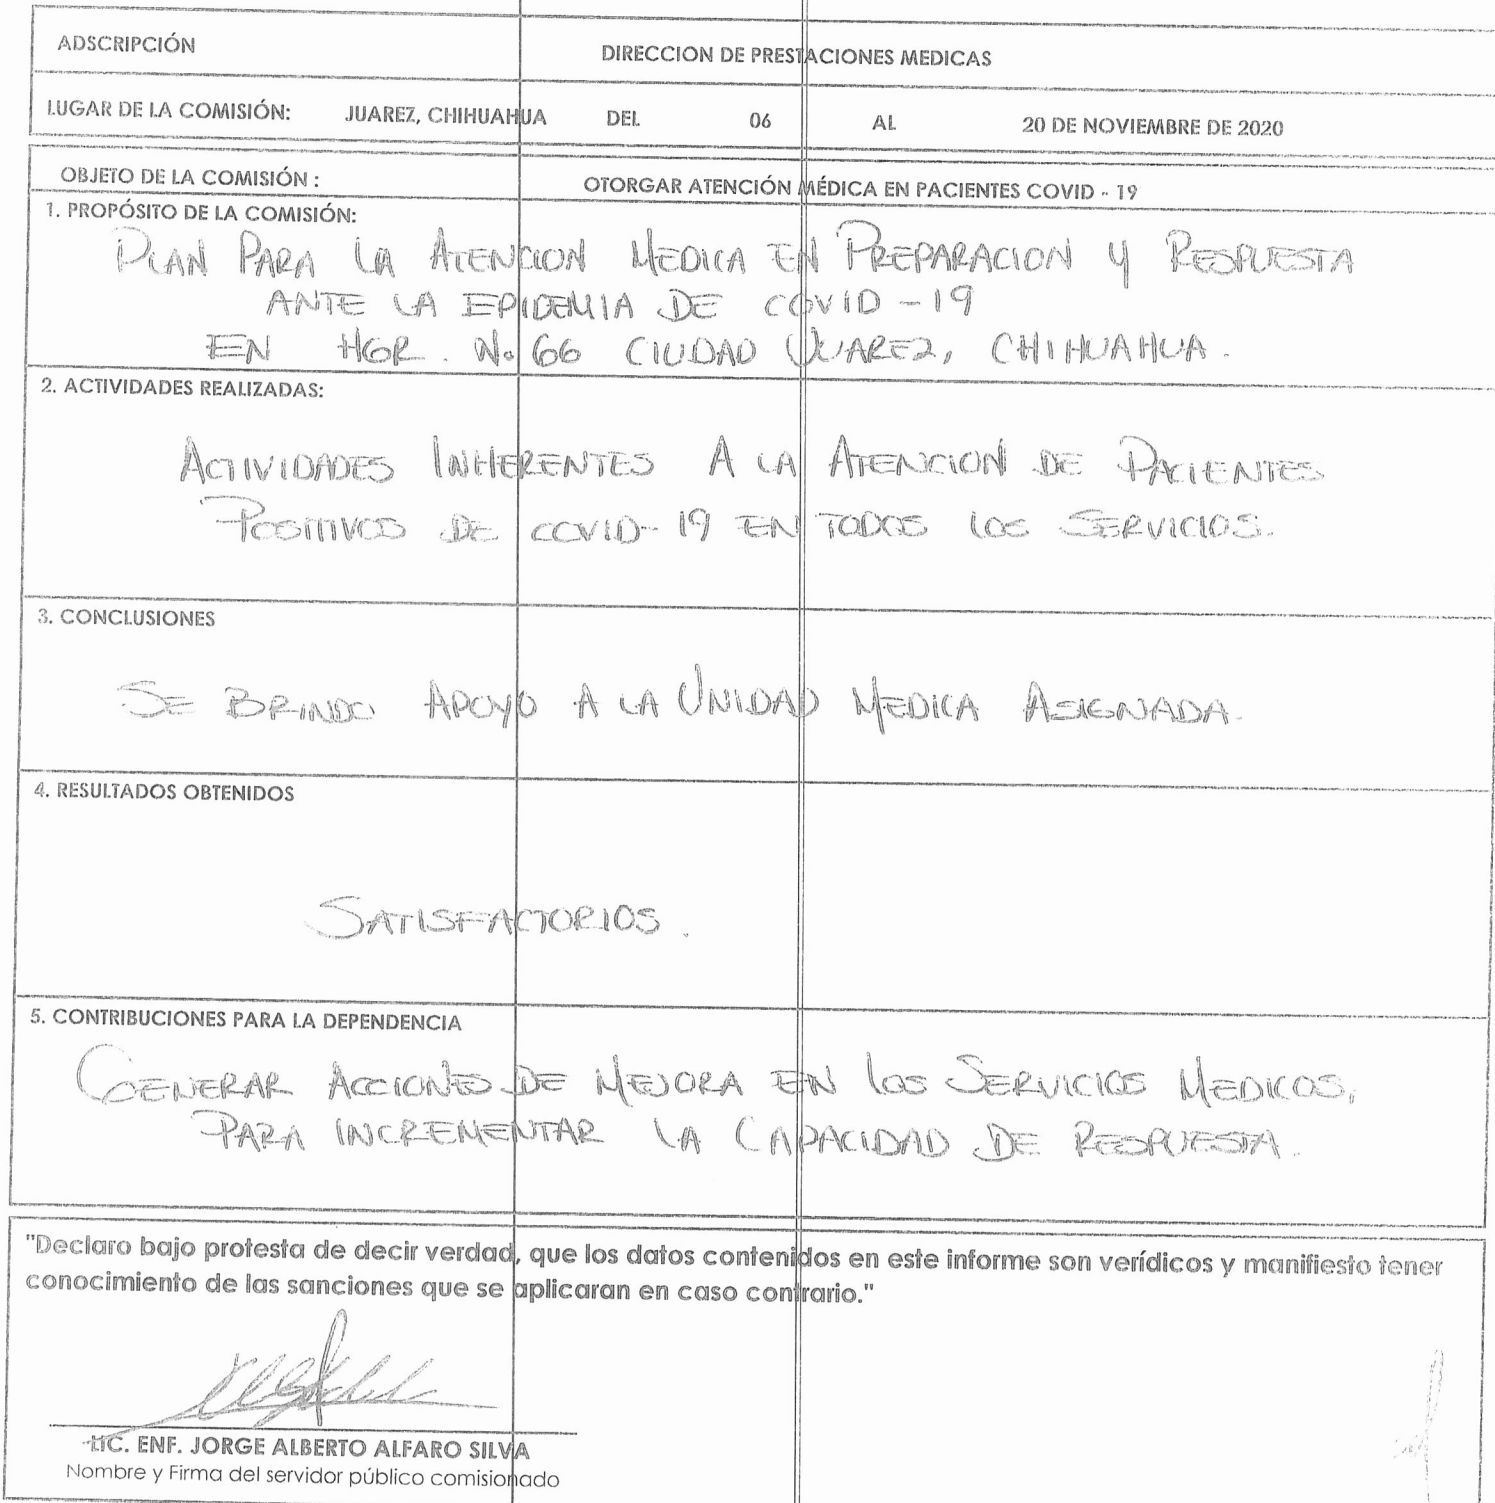 ADSCRIPCIÓN DIRECCION DE PRESTACIONES MEDICAS
LUGAR DE LA COMISIÓN: JUAREZ, CHIHUAHUA DEL 06 AL 20 DE NOVIEMBRE DE 2020
OBJETO DE LA COMISIÓN : OTORGAR ATENCIÓN MÉDICA EN PACIENTES COVID - 19
1. PROPÓSITO DE LA COMISIÓN:
PLAN PARA LA ATENCION MEDICA EN PREPARACION Y RESPUESTA
ANTE LA EPIDEMIA DE COVID-19
EN HGR. No 66 CIUDAD JUAREZ, CHIHUAHUA.
2. ACTIVIDADES REALIZADAS:
ACTIVIDADES INHERENTES A LA ATENCION DE PACIENTES
POSITIVOS DE COVID-19 EN TODOS LOS SERVICIOS.
3. CONCLUSIONES
SE BRINDO APOYO A LA UNIDAD MEDICA ASIGNADA.
4. RESULTADOS OBTENIDOS
SATISFACTORIOS.
5. CONTRIBUCIONES PARA LA DEPENDENCIA
GENERAR ACCIONES DE MEJORA EN LOS SERVICIOS MEDICOS,
PARA INCREMENTAR LA CAPACIDAD DE RESPUESTA.
"Declaro bajo protesta de decir verdad, que los datos contenidos en este informe son verídicos y manifiesto tener
conocimiento de las sanciones que se aplicaran en caso contrario."
LIC. ENF. JORGE ALBERTO ALFARO SILVA
Nombre y Firma del servidor público comisionado